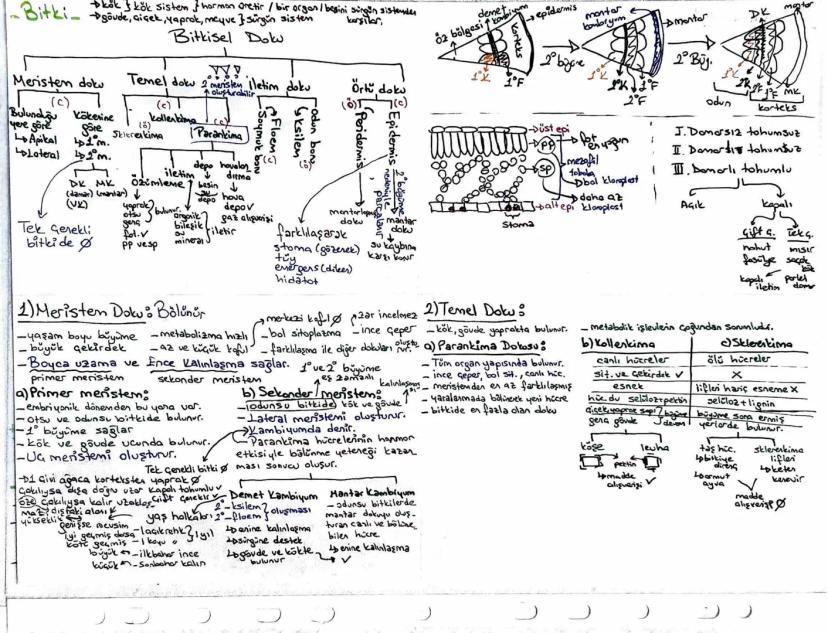 - Bitki -
→ kök } kök sistem } hormon üretir / bir organ / besini sürgün sistemden karşılar.
→ gövde, çiçek, yaprak, meyve } sürgün sistem
Bitkisel Doku
Meristem doku
(C)
Bulunduğu yere göre
↳ Apikal
↳ Lateral
Kökenine göre
↳ 1° m.
↳ 2° m.
DK (damar)
MK (mantar)
(VK)
Tek çenekli bitkide ∅
Temel doku
Sklerenkima
(ö)
Kollenkima
(c)
Parankima
(c)
2° meristem oluşturabilir
Özümleme
yaprak
otsu
genç
bulunur.
fot. ✓
pp ve sp
iletim
organik bileşik
su
mineral
iletir
depo
besin
su
depo
havalandırma
hava depo ✓
gaz alışverişi
İletim doku
Floem
Soymuk boru
(c)
Ksilem
Odun boru
(ö)
Örtü doku
(ö)
Peridermis
mantarlaşmış doku
(c)
Epidermis
2° büyüme nedeniyle parçalanır
mantar doku
su kaybına karşı korur
farklılaşarak
stoma (gözenek)
tüy
emergens (diken)
hidatot
öz bölgesi
demet kambiyum
epidermis
korteks
1°K
1°F
2° büyüme
mantar kambiyum
mantar
1°K
2°K
1°F
2°F
2° Büy.
DK
mantar
1°K
1°F
2°F
MK
odun
korteks
üst epi
pp
fot en yoğun
mezofil tabaka
bol kloroplast
sp
daha az kloroplast
alt epi
stoma
I. Damarsız tohumsuz
II. Damarlı tohumsuz
III. Damarlı tohumlu
Açık
Kapalı
Çift ç.
nohut
fasülye
kapalı iletim
Tek ç.
mısır
saçak kök
paralel damar
1) Meristem Doku: Bölünür
- yaşam boyu büyüme
- büyük çekirdek
- metabolizma hızlı
- az ve küçük koful
→ merkezi koful ∅
- bol sitoplazma
- farklılaşma ile diğer dokuları oluşturur.
→ zar incelmez
- ince çeper
- Boyca uzama ve Ence Kalınlaşma sağlar.
primer meristem
sekonder meristem
1° ve 2° büyüme eş zamanlı
a) Primer meristem:
- embriyonik dönemden bu yana var.
- otsu ve odunsu bitkide bulunur.
- 1° büyüme sağlar
- kök ve gövde ucunda bulunur.
- Uç meristemi oluşturur.
b) Sekonder meristem:
kalınlaşma
- odunsu bitkide kök ve gövde
- Lateral meristemi oluşturur.
→ Kambiyumda denir.
- Parankima hücrelerinin hormon etkisiyle bölünme yeteneği kazanması sonucu oluşur.
Tek çenekli bitki ∅
yaprak ∅
Kapalı tohumlu ✓
Çift çenekli ✓
yaş halkaları
1 yıl
büyük ← - ilkbahar ince
küçük ← - sonbahar kalın
Demet Kambiyum
2° - ksilem
2° - floem
oluşması
↳ enine kalınlaşma
↳ sürgüne destek
↳ gövde ve kökte bulunur
Mantar Kambiyum
- odunsu bitkilerde mantar dokuyu oluşturan canlı ve bölünebilen hücre
↳ enine kalınlaşma
✓
2) Temel Doku:
- kök, gövde yaprakta bulunur.
- metabolik işlevlerin çoğundan sorumludur.
a) Parankima Dokusu:
- Tüm organ yapısında bulunur.
- ince çeper, bol sit., canlı hüc.
- meristemden en az farklılaşmış
- yaralanmada bölünerek yeni hücre
- bitkide en fazla olan doku
b) Kollenkima
c) Sklerenkima
canlı hücreler
ölü hücreler
sit. ve çekirdek ✓
X
esnek
lifleri hariç esneme X
hüc. du selüloz + pektin
selüloz + lignin
çiçek, yaprak sapı
genç gövde
büyüme devam
büyüme sona ermiş yerlerde bulunur.
köşe
levha
pektin
↳ madde alışverişi ✓
taş hüc.
↳ bitkiye direnç
↳ armut
ayva
sklerenkima lifleri
↳ keten
kenevir
madde alışverişi ∅